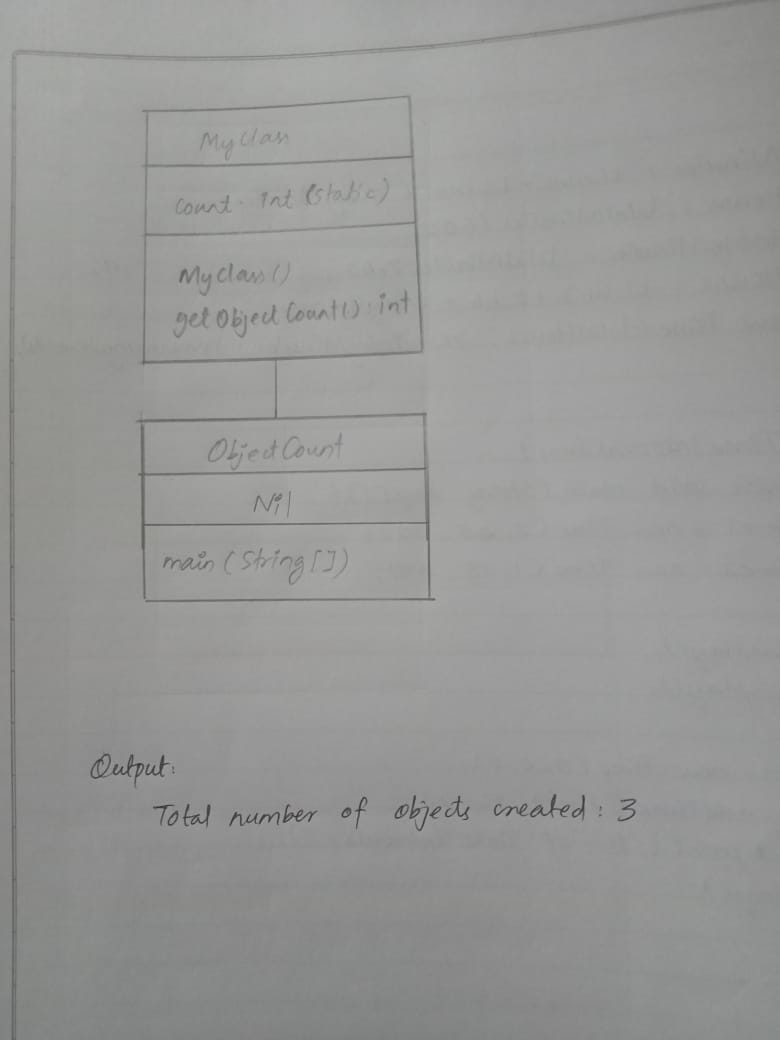 MyClass
count - int (static)
MyClass()
getObjectCount() : int
ObjectCount
Nil
main (String[])
Output:
Total number of objects created : 3